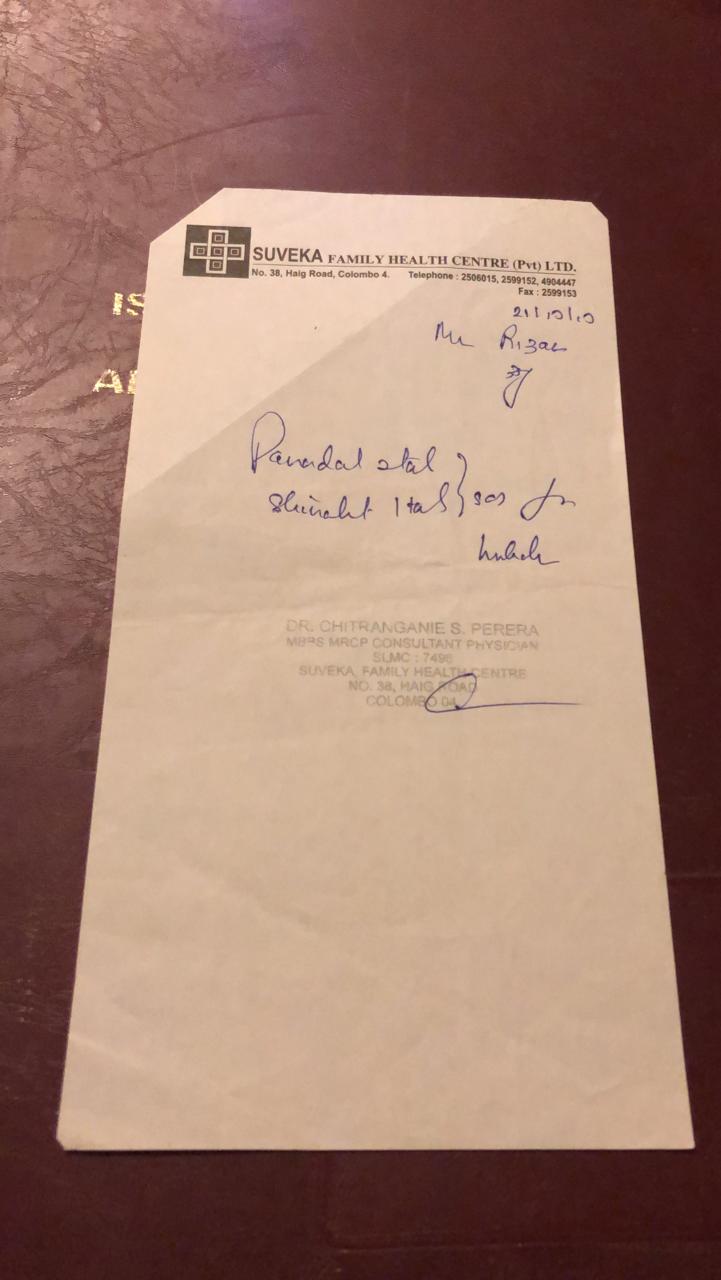 IS
SUVEKA FAMILY HEALTH CENTRE (Pvt) LTD.
No. 38, Haig Road, Colombo 4. Telephone : 2506015, 2599152, 4904447
Fax : 2599153
Mr
Panadol 2tab
1tab } sos for
DR. CHITRANGANIE S. PERERA
MBBS MRCP CONSULTANT PHYSICIAN
SLMC : 7496
SUVEKA FAMILY HEALTH CENTRE
NO. 38, HAIG ROAD
COLOMBO 04